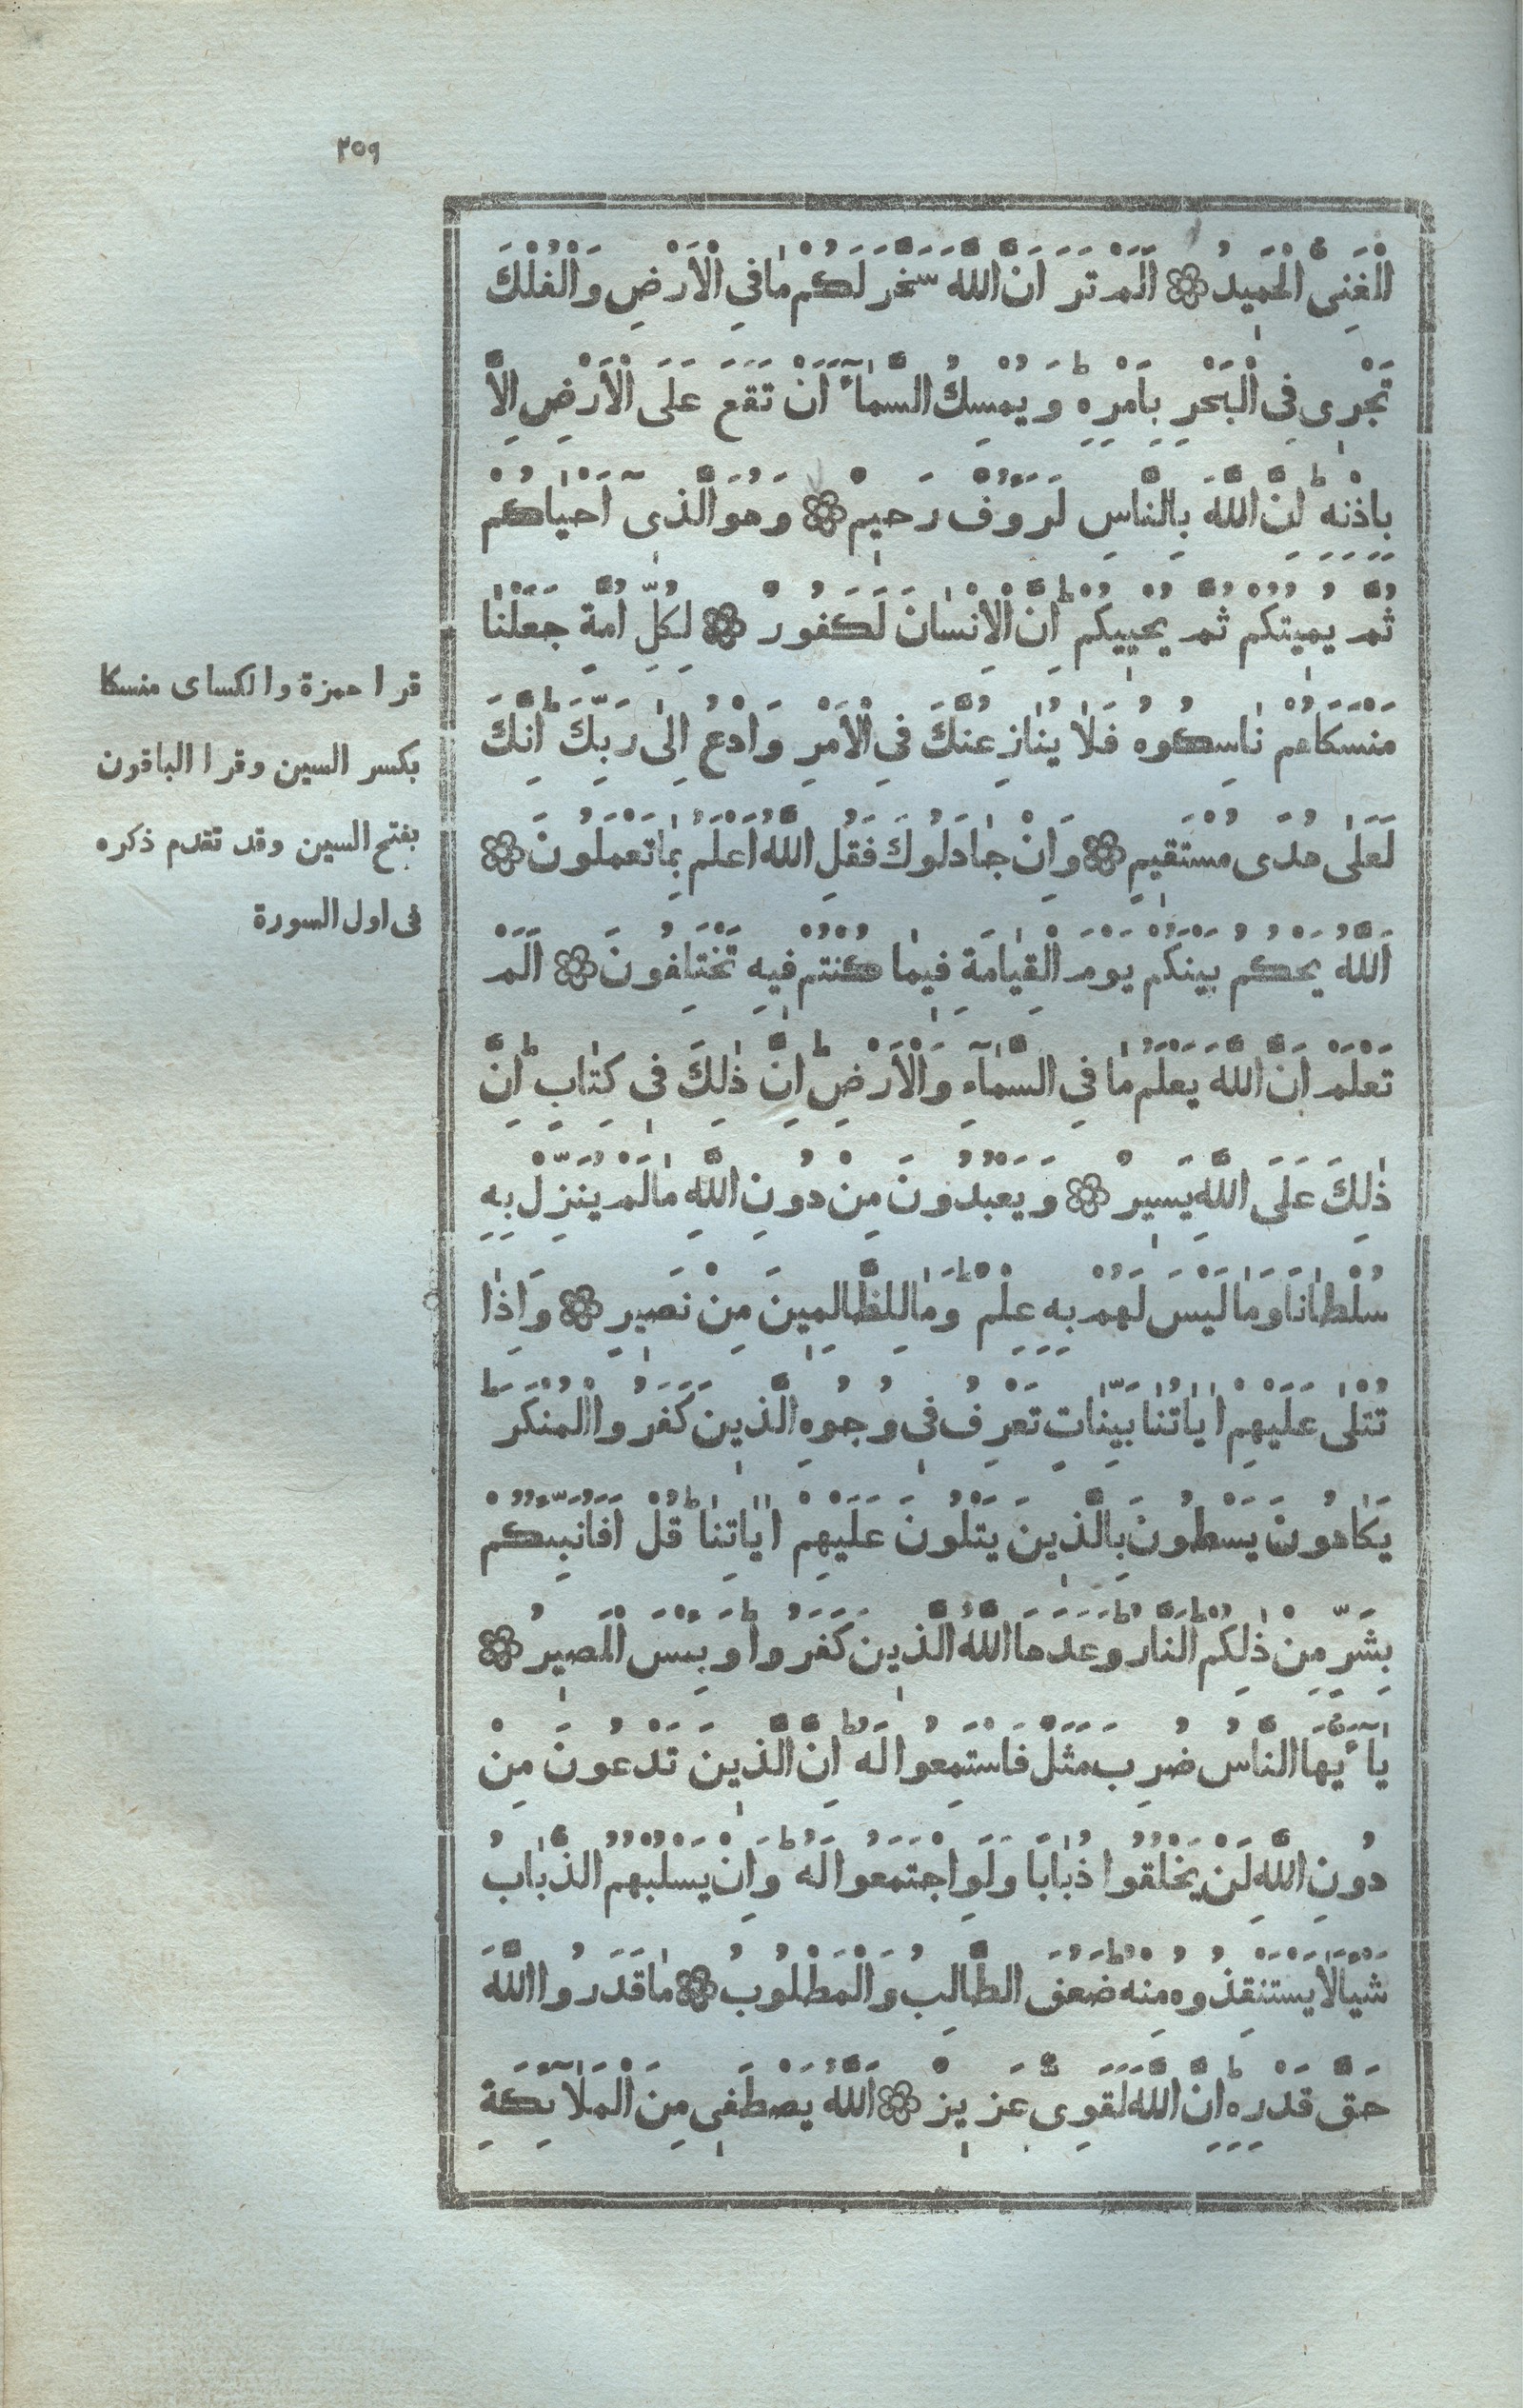 ٢٥٩
اَلْغَنِىُّ الْحَمِيدُ ۞ اَلَمْ تَرَ اَنَّ اللّٰهَ سَخَّرَ لَكُمْ مَا فِى الْاَرْضِ وَالْفُلْكَ
تَجْرِى فِى الْبَحْرِ بِاَمْرِهِ ط وَيُمْسِكُ السَّمَآءَ اَنْ تَقَعَ عَلَى الْاَرْضِ اِلَّا
بِاِذْنِهِ ط اِنَّ اللّٰهَ بِالنَّاسِ لَرَؤُفٌ رَحِيمٌ ۞ وَهُوَ الَّذِىٓ اَحْيَاكُمْ
ثُمَّ يُمِيتُكُمْ ثُمَّ يُحْيِيكُمْ ط اِنَّ الْاِنْسَانَ لَكَفُورٌ ۞ لِكُلِّ اُمَّةٍ جَعَلْنَا
مَنْسَكًا هُمْ نَاسِكُوهُ فَلَا يُنَازِعُنَّكَ فِى الْاَمْرِ وَادْعُ اِلٰى رَبِّكَ ط اِنَّكَ
لَعَلٰى هُدًى مُسْتَقِيمٍ ۞ وَاِنْ جَادَلُوكَ فَقُلِ اللّٰهُ اَعْلَمُ بِمَا تَعْمَلُونَ ۞
اَللّٰهُ يَحْكُمُ بَيْنَكُمْ يَوْمَ الْقِيَامَةِ فِيمَا كُنْتُمْ فِيهِ تَخْتَلِفُونَ ۞ اَلَمْ
تَعْلَمْ اَنَّ اللّٰهَ يَعْلَمُ مَا فِى السَّمَآءِ وَالْاَرْضِ ط اِنَّ ذٰلِكَ فِى كِتَابٍ ط اِنَّ
ذٰلِكَ عَلَى اللّٰهِ يَسِيرٌ ۞ وَيَعْبُدُونَ مِنْ دُونِ اللّٰهِ مَا لَمْ يُنَزِّلْ بِهِ
سُلْطَانًا وَمَا لَيْسَ لَهُمْ بِهِ عِلْمٌ ط وَمَا لِلظَّالِمِينَ مِنْ نَصِيرٍ ۞ وَاِذَا
تُتْلٰى عَلَيْهِمْ اٰيَاتُنَا بَيِّنَاتٍ تَعْرِفُ فِى وُجُوهِ الَّذِينَ كَفَرُوا الْمُنْكَرَ ط
يَكَادُونَ يَسْطُونَ بِالَّذِينَ يَتْلُونَ عَلَيْهِمْ اٰيَاتِنَا ط قُلْ اَفَاُنَبِّئُكُمْ
بِشَرٍّ مِنْ ذٰلِكُمْ ط اَلنَّارُ ط وَعَدَهَا اللّٰهُ الَّذِينَ كَفَرُوا ط وَبِئْسَ الْمَصِيرُ ۞
يَآءَيُّهَا النَّاسُ ضُرِبَ مَثَلٌ فَاسْتَمِعُوا لَهُ ط اِنَّ الَّذِينَ تَدْعُونَ مِنْ
دُونِ اللّٰهِ لَنْ يَخْلُقُوا ذُبَابًا وَلَوِ اجْتَمَعُوا لَهُ ط وَاِنْ يَسْلُبْهُمُ الذُّبَابُ
شَيْئًا لَا يَسْتَنْقِذُوهُ مِنْهُ ط ضَعُفَ الطَّالِبُ وَالْمَطْلُوبُ ۞ مَا قَدَرُوا اللّٰهَ
حَقَّ قَدْرِهِ ط اِنَّ اللّٰهَ لَقَوِىٌّ عَزِيزٌ ۞ اَللّٰهُ يَصْطَفِى مِنَ الْمَلَآئِكَةِ
قرا حمزة والكساى منسكا
بكسر السين وقرا الباقون
بفتح السين وقد تقدم ذكره
فى اول السورة